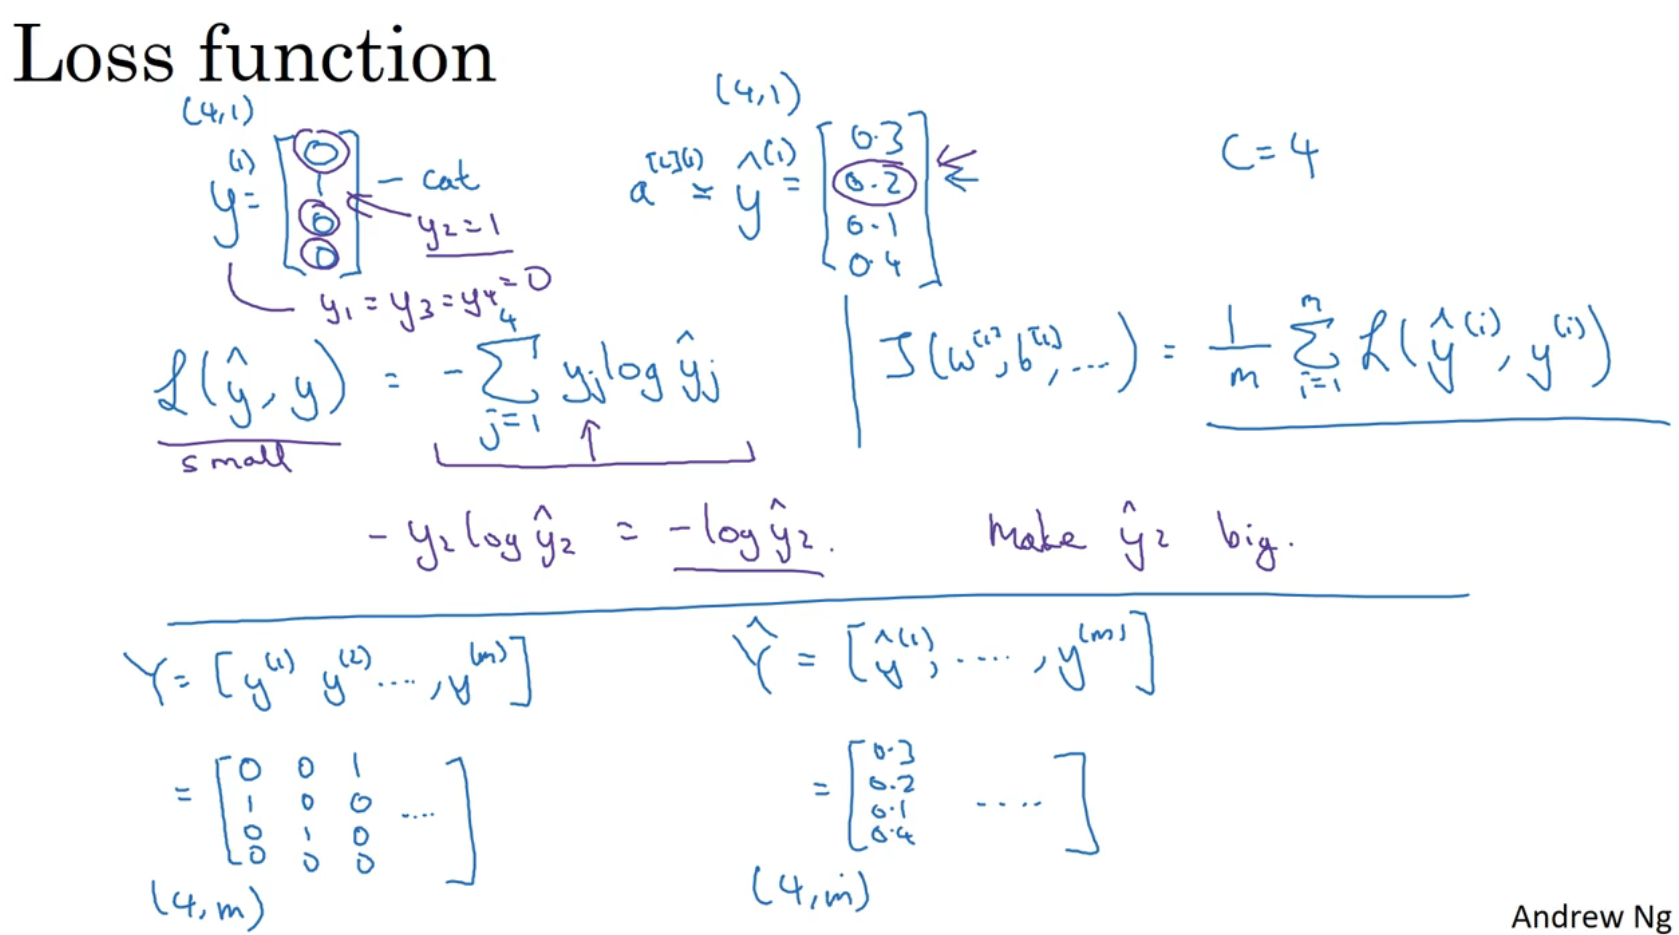 Loss function
(4,1)
y⁽¹⁾ = [0 1 0 0] - cat
y₂ = 1
y₁ = y₃ = y₄ = 0
(4,1)
a^[L](1) = ŷ^(1) = [0.3 0.2 0.1 0.4]
C = 4
ℒ(ŷ, y) = - ∑_{j=1}^{4} y_j log ŷ_j
small
J(w^[1], b^[1], ...) = 1/m ∑_{i=1}^{m} ℒ(ŷ^(i), y^(i))
- y₂ log ŷ₂ = - log ŷ₂.
Make ŷ₂ big.
Y = [y^(1) y^(2) ...., y^(m)]
Ŷ = [ŷ^(1), ...., y^(m)]
= [0 0 1
1 0 0 ....
0 1 0
0 0 0]
(4,m)
= [0.3
0.2 .....
0.1
0.4]
(4,m)
Andrew Ng